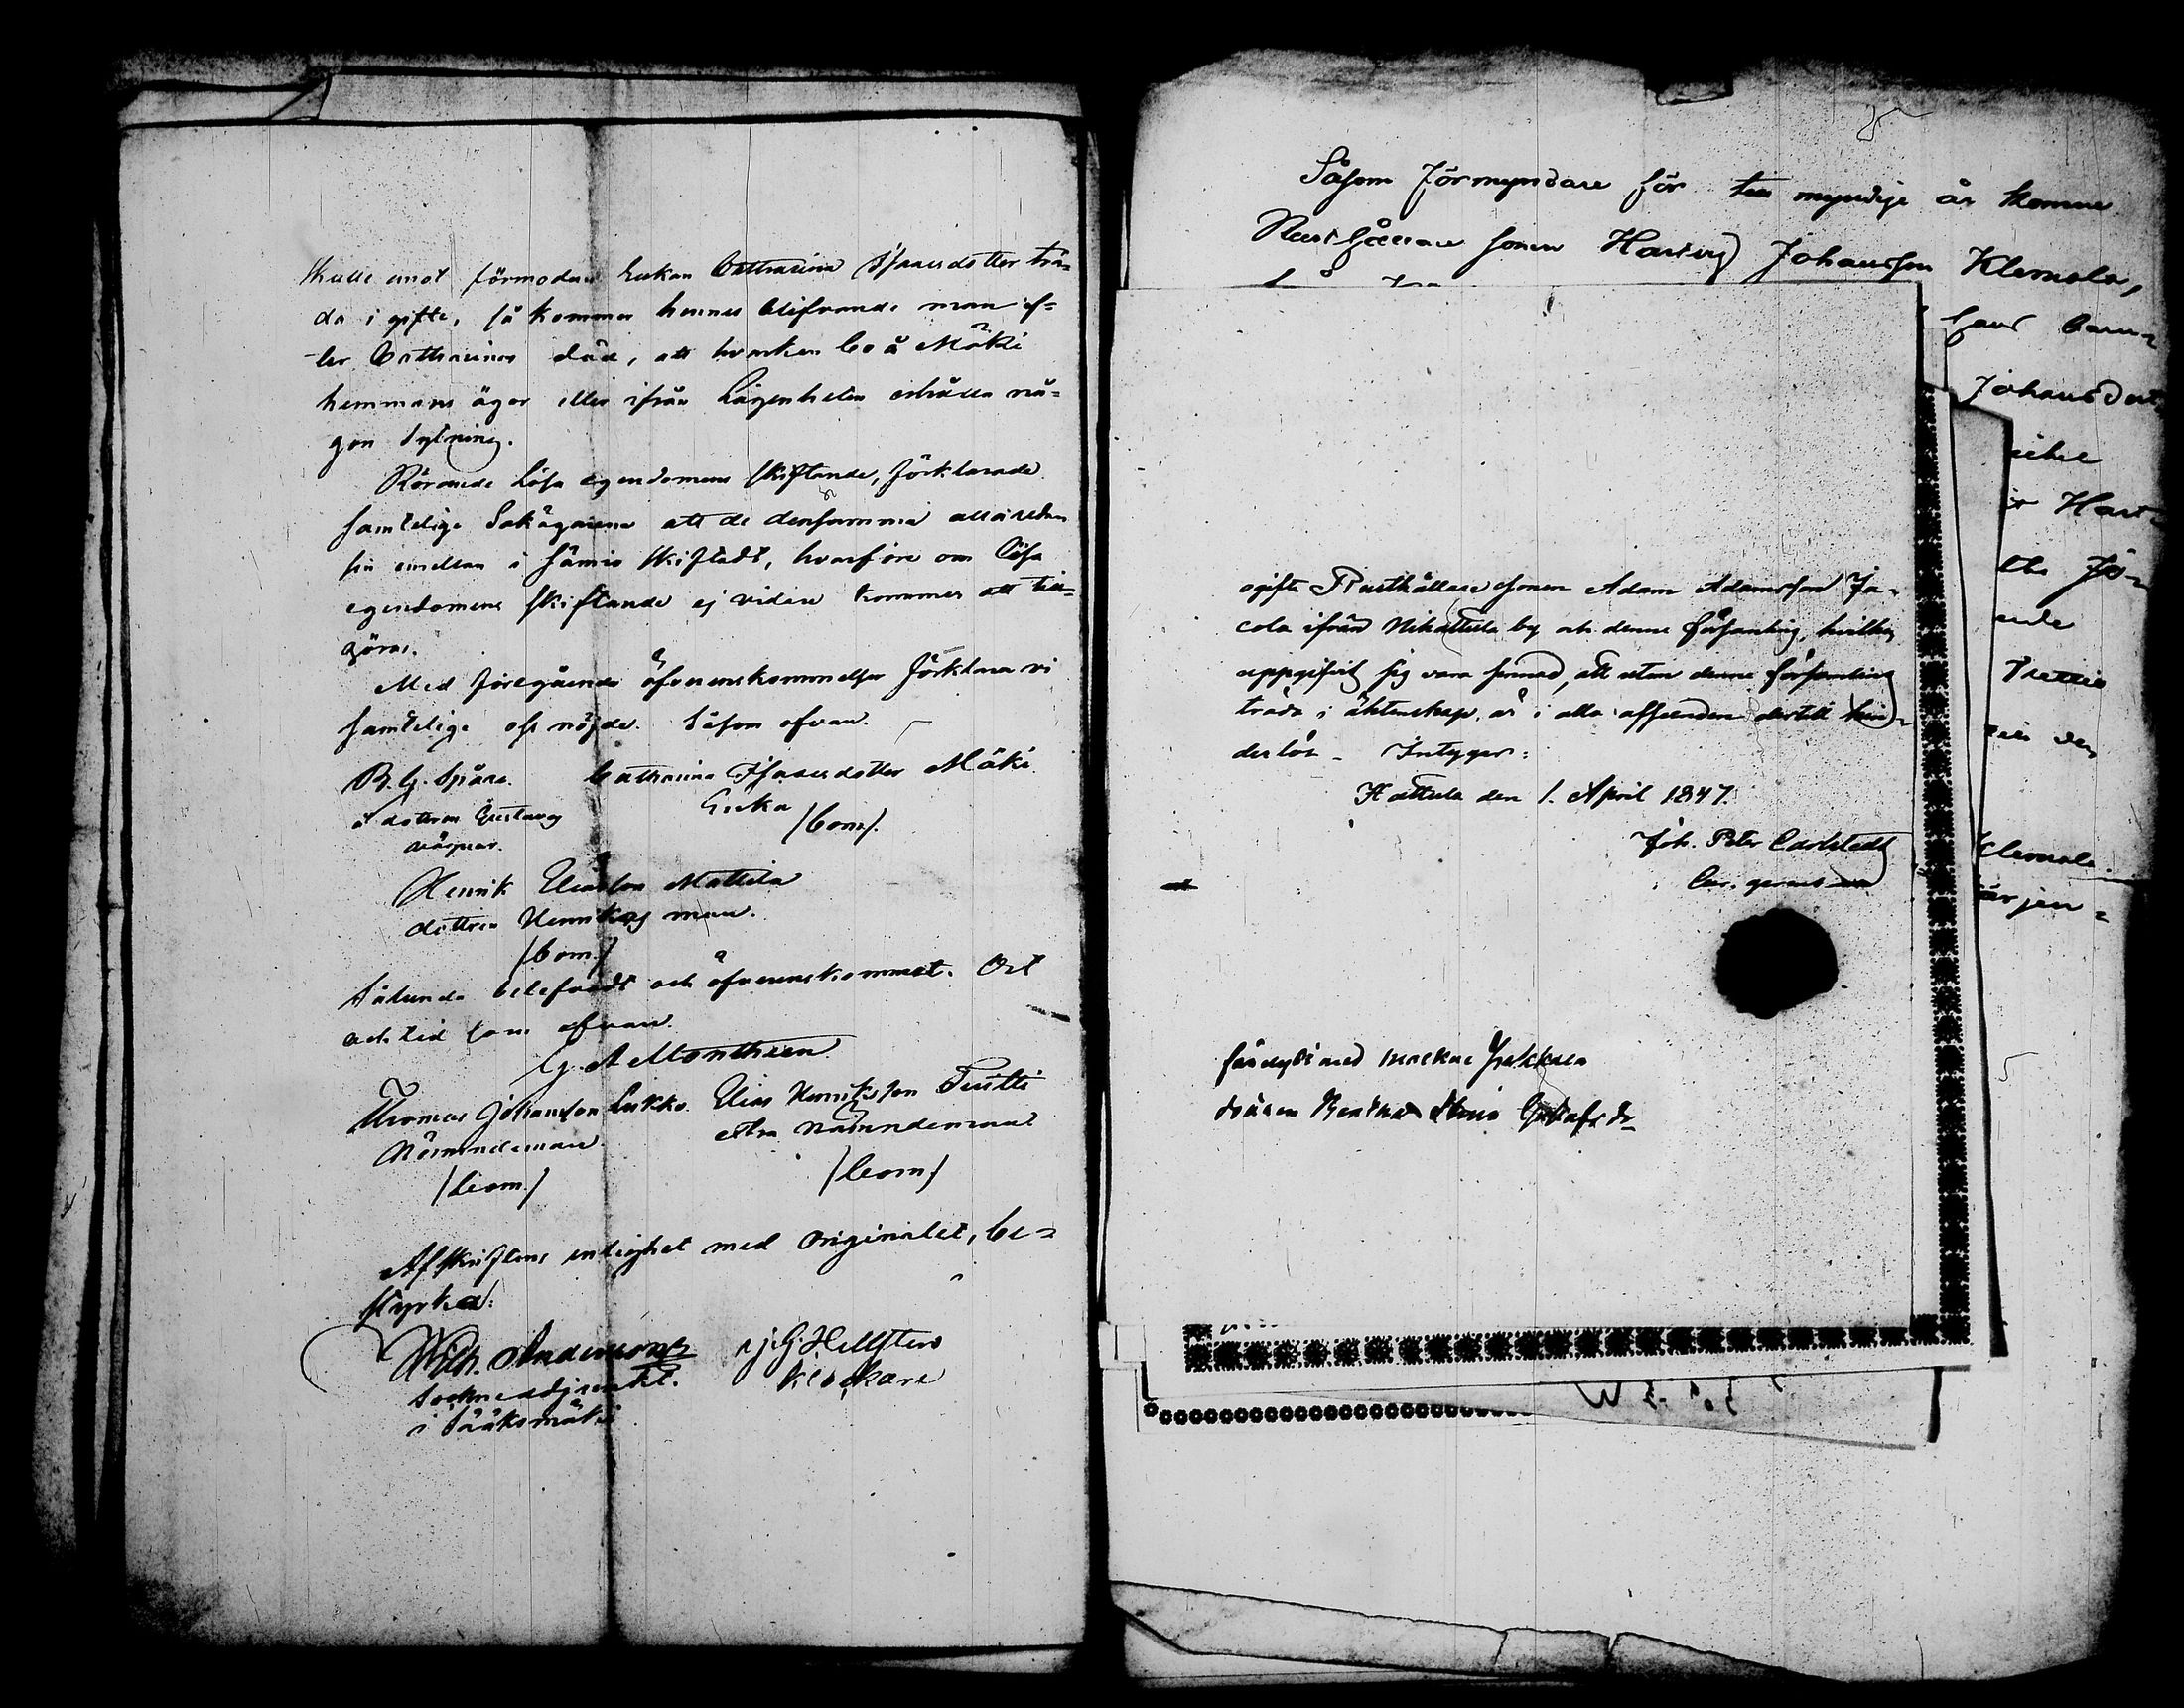 skulle emot förmodan Enkan Catharina Isaacsdotter trä-
da i gifte, så kommer hennes blifvande man ef-
ter Catharinas död, att hvarken bo å Mäki
hemmans ägor eller ifrån Lägenheten erhålla nå-
gon Sytning.
Rörande Lösa egendomens skiftande, förklarade
samtelige Sakägarene att de densamma allaredan
sin emellan i sämio skiftadt, hvarföre om Lösa
egendomens skiftande ej vidare kommer att till-
göras.
Med föregående öfverenskommelse förklara vi
samtelige oss nöjde. Såsom ofvan.
B. G. Spåre. Catharina Isaacsdotter Mäki
å dottren Gustavas Enka
vägnar. /bom./
Henrik Eliasson Mattila
dottren Henrikas man.
/bom./
Sålunda belefvadt och öfverenskommet. Ort
och tid som ofvan.
G. A. Monthien
Thomas Johansson Lukko. Elias Henriksson Pentti
Nämndeman extra Nämndeman
/bom./ /bom/
Afskriftens enlighet med Originalet, be-
styrka:
Wilh. Andersson J. G. Hellsten
Sockneadjunkt. Klockare
i Sääksmäki
Såsom Förmyndare för till myndige år komne
Rusthållare sonen Hartvig Johansson Klemola,
Johansdott
Klemola
ogifte Rusthållare sonen Adam Adamsson Ja-
cola ifrån Nihattula by och denne församling, hvilken
uppgifvit sig vara sinnad, att utom denne församling
träda i äktenskap, är i alla afseenden dertill hin-
derlös. Intygar:
Hattula den 1. April 1847.
Joh. Peter Carlstedt
med
drängen Gustafsdr